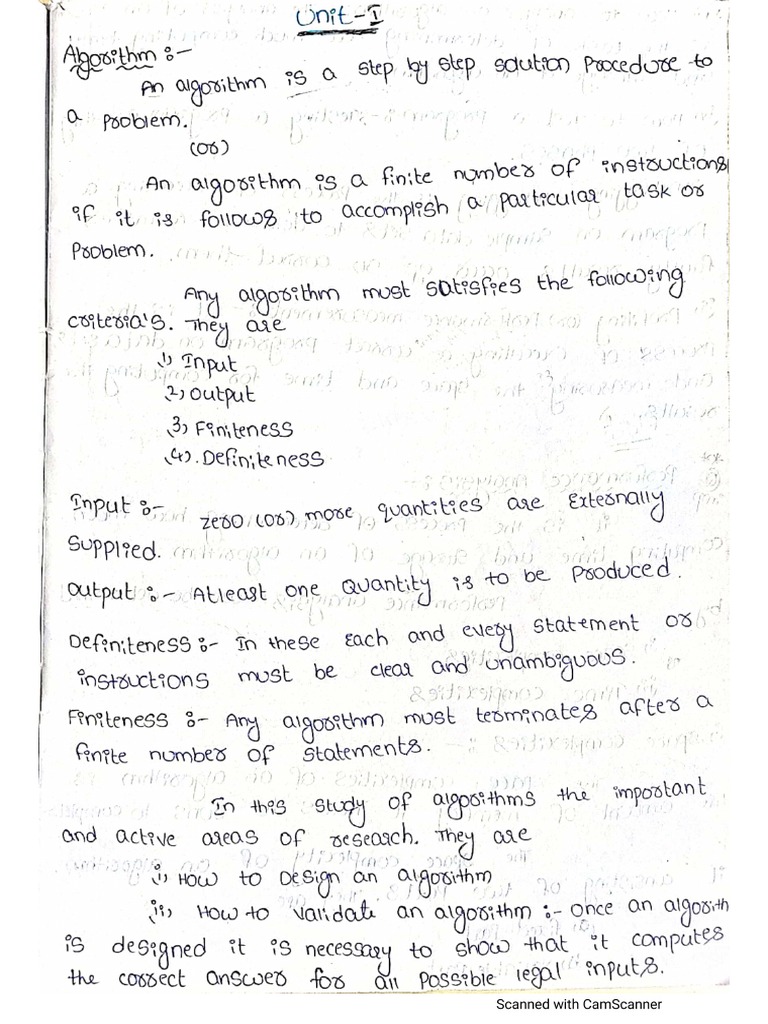 Unit-I
Algorithm :-
An algorithm is a step by step solution procedure to
a problem.
(or)
An algorithm is a finite number of instructions
if it is follows to accomplish a particular task or
problem.
Any algorithm must satisfies the following
criteria's. They are
1) Input
2) Output
3) Finiteness
4). Definiteness
Input :- zero (or) more quantities are Externally
supplied.
Output :- Atleast one Quantity is to be produced.
Definiteness :- In these Each and every statement or
instructions must be clear and unambiguous.
Finiteness :- Any algorithm must terminates after a
finite number of statements.
In this study of algorithms the important
and active areas of research. They are
i) How to Design an algorithm
ii) How to validate an algorithm :- Once an algorith
is designed it is necessary to show that it computes
the correct answer for all possible legal inputs.
Scanned with CamScanner